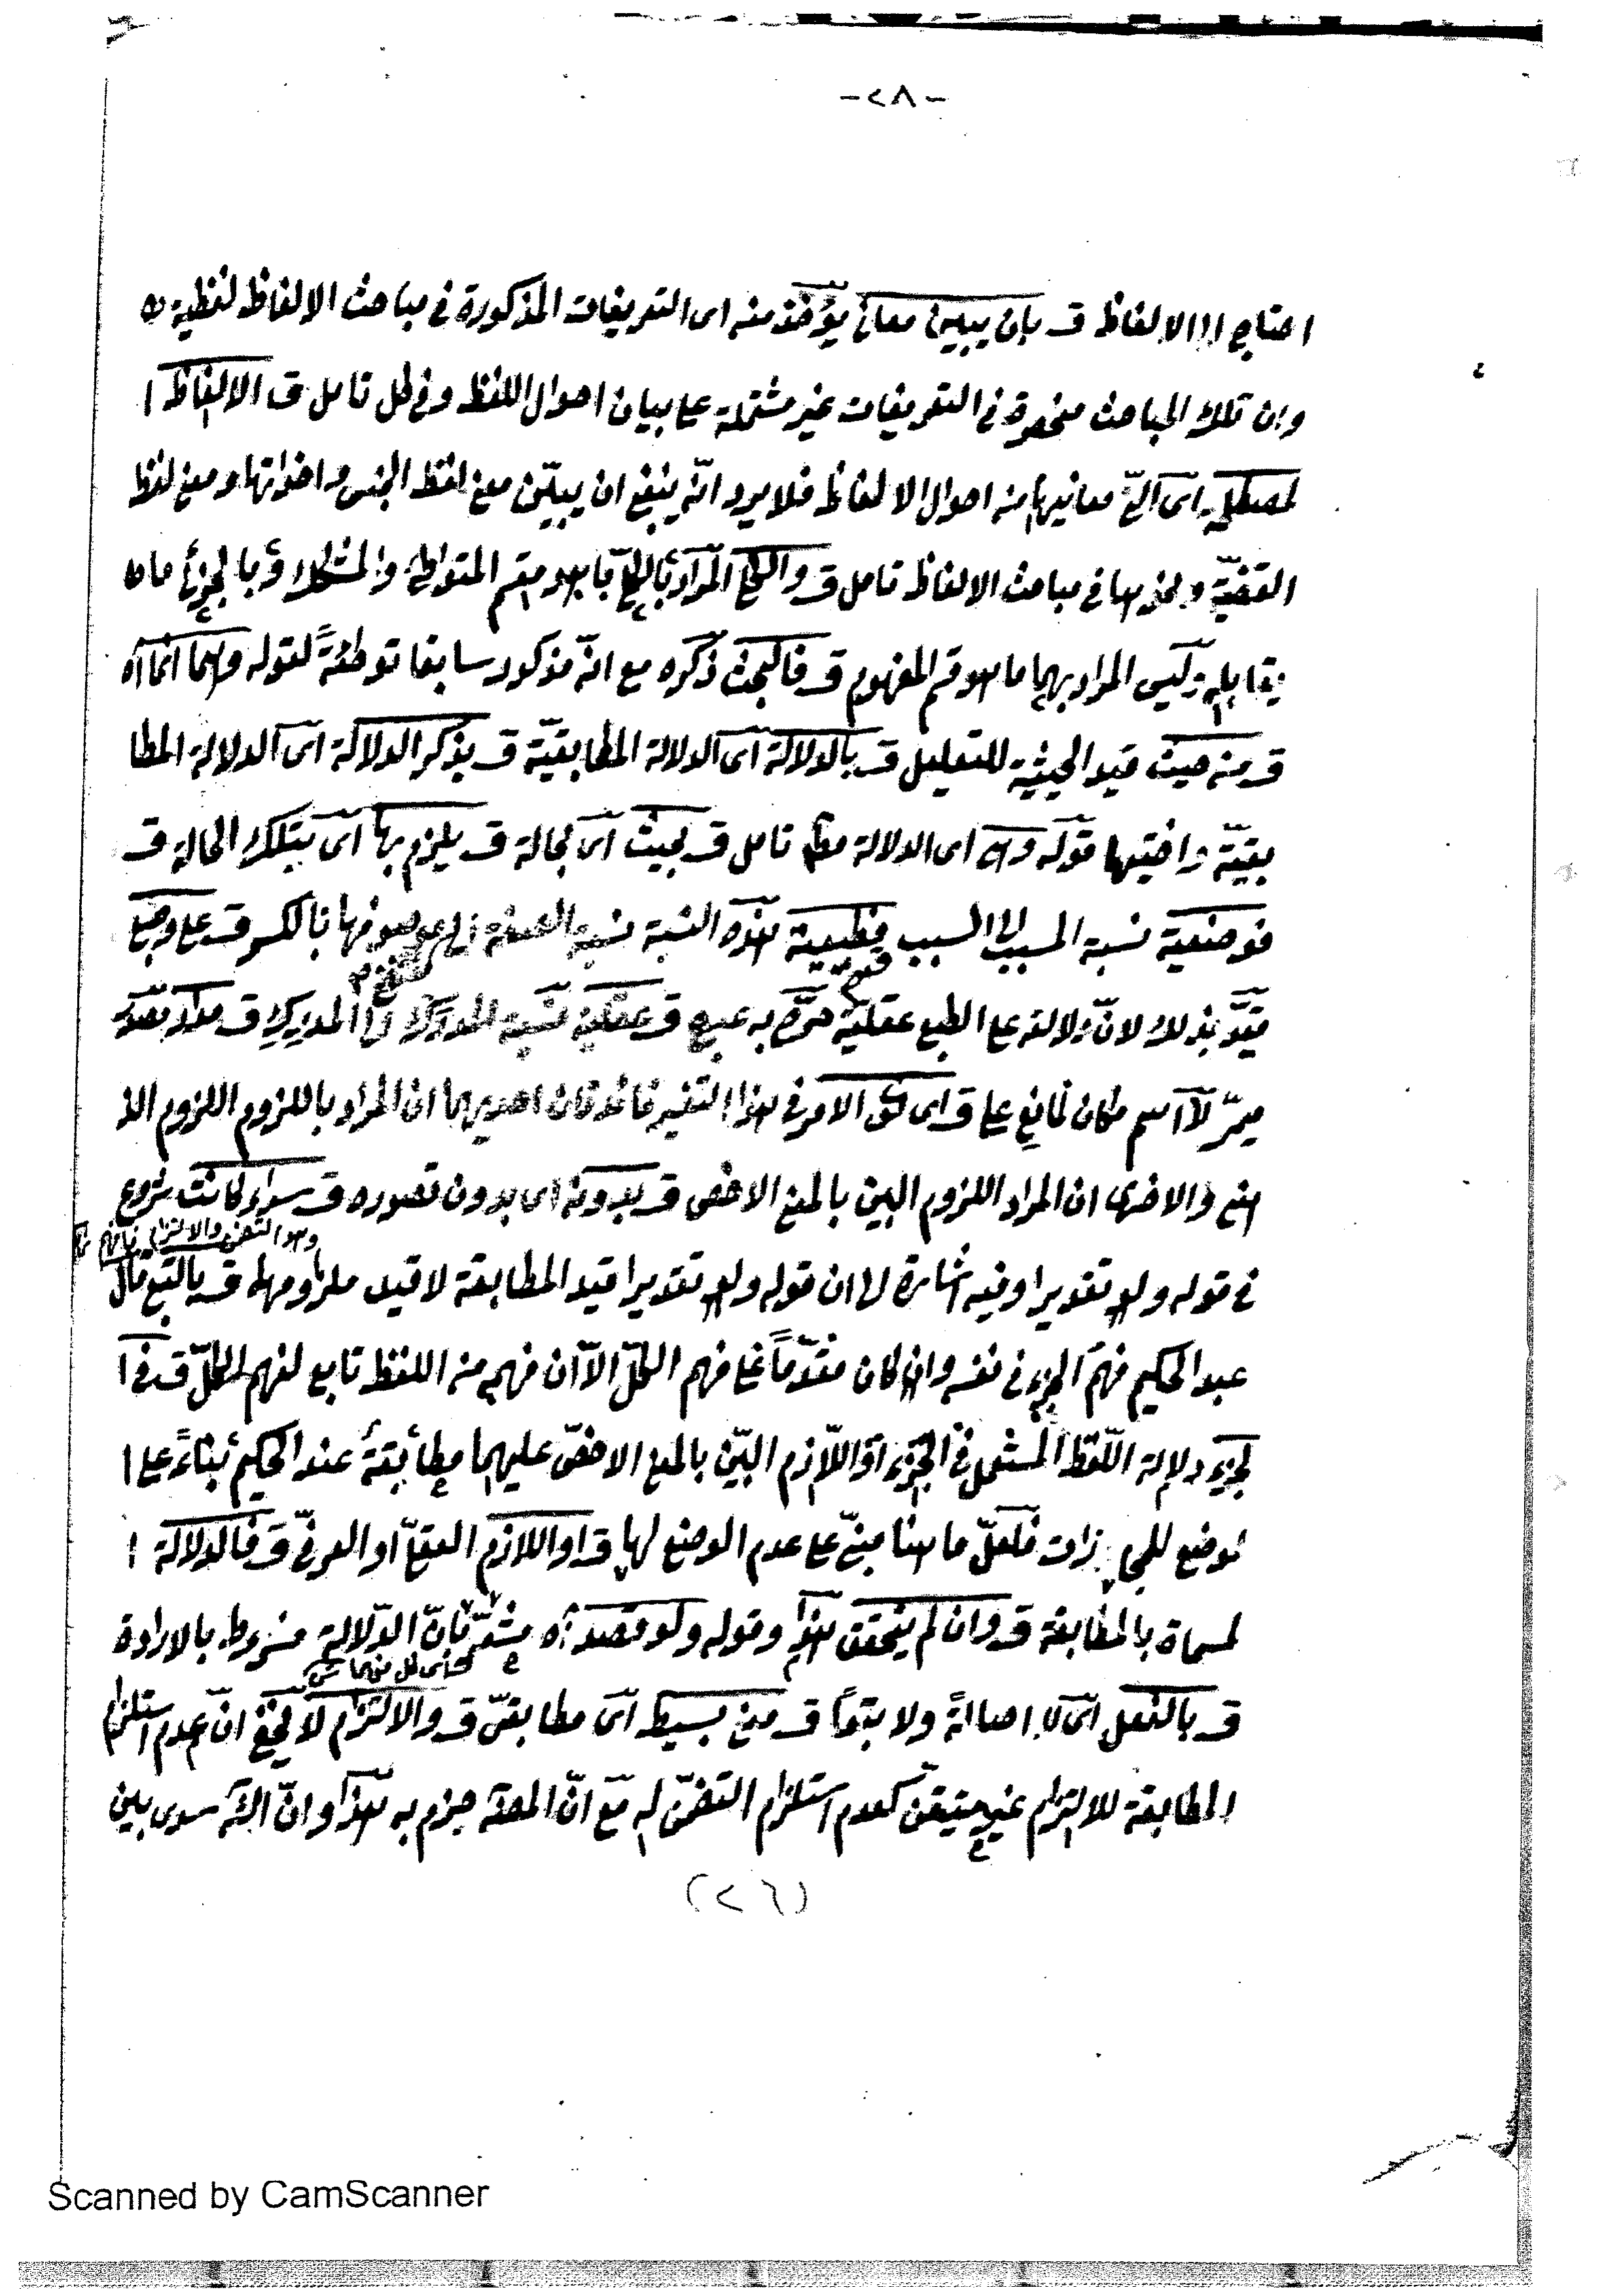 -٢٨-
احتاج الى الالفاظ ق بان يبين معانى يؤخذ منه اى التعريفات المذكورة فى مباحث الالفاظ لفظية
وان تلك المباحث منحصرة فى التعريفات غير مشتملة على بيان احوال اللفظ وفى كل تامل ق الالفاظ ا
لمصطلحة اى الخ معانيها من احوال الالفاظ فلا يرد انّه ينبغى ان يبيّن معنى لفظ الجنس واخواتها ومعنى لفظ
القضيّة ونحوها فى مباحث الالفاظ تامل ق والكلى المراد بالكلى ما هو مقسم المتواطئ والمشكك وبالجزئى ما
يقابله وليس المراد بهما ما هو قسم المفهوم ق فالبحث ذكره مع انّه مذكور سابقا توطئةً لقوله وهما انما آه
ق من حيث قيد الحيثية للتعليل ق بالدلالة اى الدلالة المطابقيّة ق بذكر الدلالة اى الدلالة المطا
بقيّة واختيها قوله اى الدلالة تامل ق بحيث اى بحالة ق يلزم بها اى بتلك الحالة ق
فوضعية نسبة المسبب الى السبب فطبيعية هذه النسبة نسبة الصفة الى موصوفها بالكسر ق على وجع
قيّد بذلك لانّ دلالته على الطبع عقلية صرّح به ق عقلية نسبة المدرَك الى المدرِك ق
ميرّ لاآ اسم مكان ق اى كون الامر فى هذا التفسير فائدتان احديهما ان المراد باللزوم اللزوم الذ
هنى والاخرى ان المراد اللزوم البين بالمعنى الاخص ق بدونه اى بدون تصوره ق سواء كانت شروع
وهو التضمن والالتزام
فى قوله ولو تقديرا وفيه اشارة الى ان قوله ولو تقديرا قيد المطابقة لا قيد ملزومها ق بالتبع قال
عبد الحكيم فهم الجزء فى نفسه وان كان مقدّماً على فهم الكلّ الاّ ان فهمه من اللفظ تابع لفهم الكلّ ق فى ا
لجزء دلالة اللّفظ المستعمل فى الجزء او اللّازم البيّن بالمعنى الاخصّ عليهما مطابقة عند الحكيم بناءً على ا
لوضع للمجازات فلعلّ ما هنا مبنىّ على عدم الوضع لها ق او اللازم العقلىّ او العرفىّ ق فالدلالة ا
لمسماة بالمطابقة ق وان لم يتحقق هذا وقوله ولو قصد آه مشعرّ بانّ الدّلالة مشروط بالارادة
ق بالفعل اى لا اصالةً ولا تبعاً ق معنى بسيط اى مطابقىّ ق والالتزام لا يخفى انّ عدم استلزام
المطابقة للالتزام غير متيقن كعدم استلزام التضمّن له مع انّ المصنّ جزم به هذا وانّ سوى بين
(٢٦)
Scanned by CamScanner